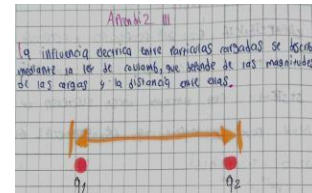 la influencia electrica entre particulas cargadas se describe
mediante la ley de coulomb, que depende de las magnitudes
de las cargas y la distancia entre ellas.
q1
q2